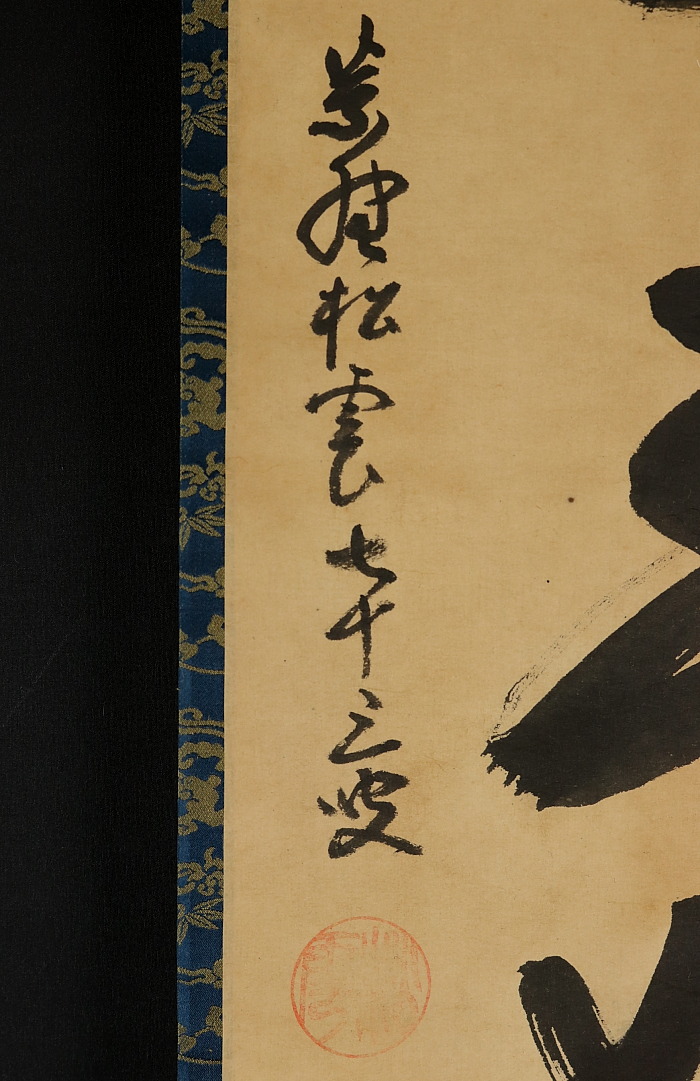 紫野松雲七十三叟